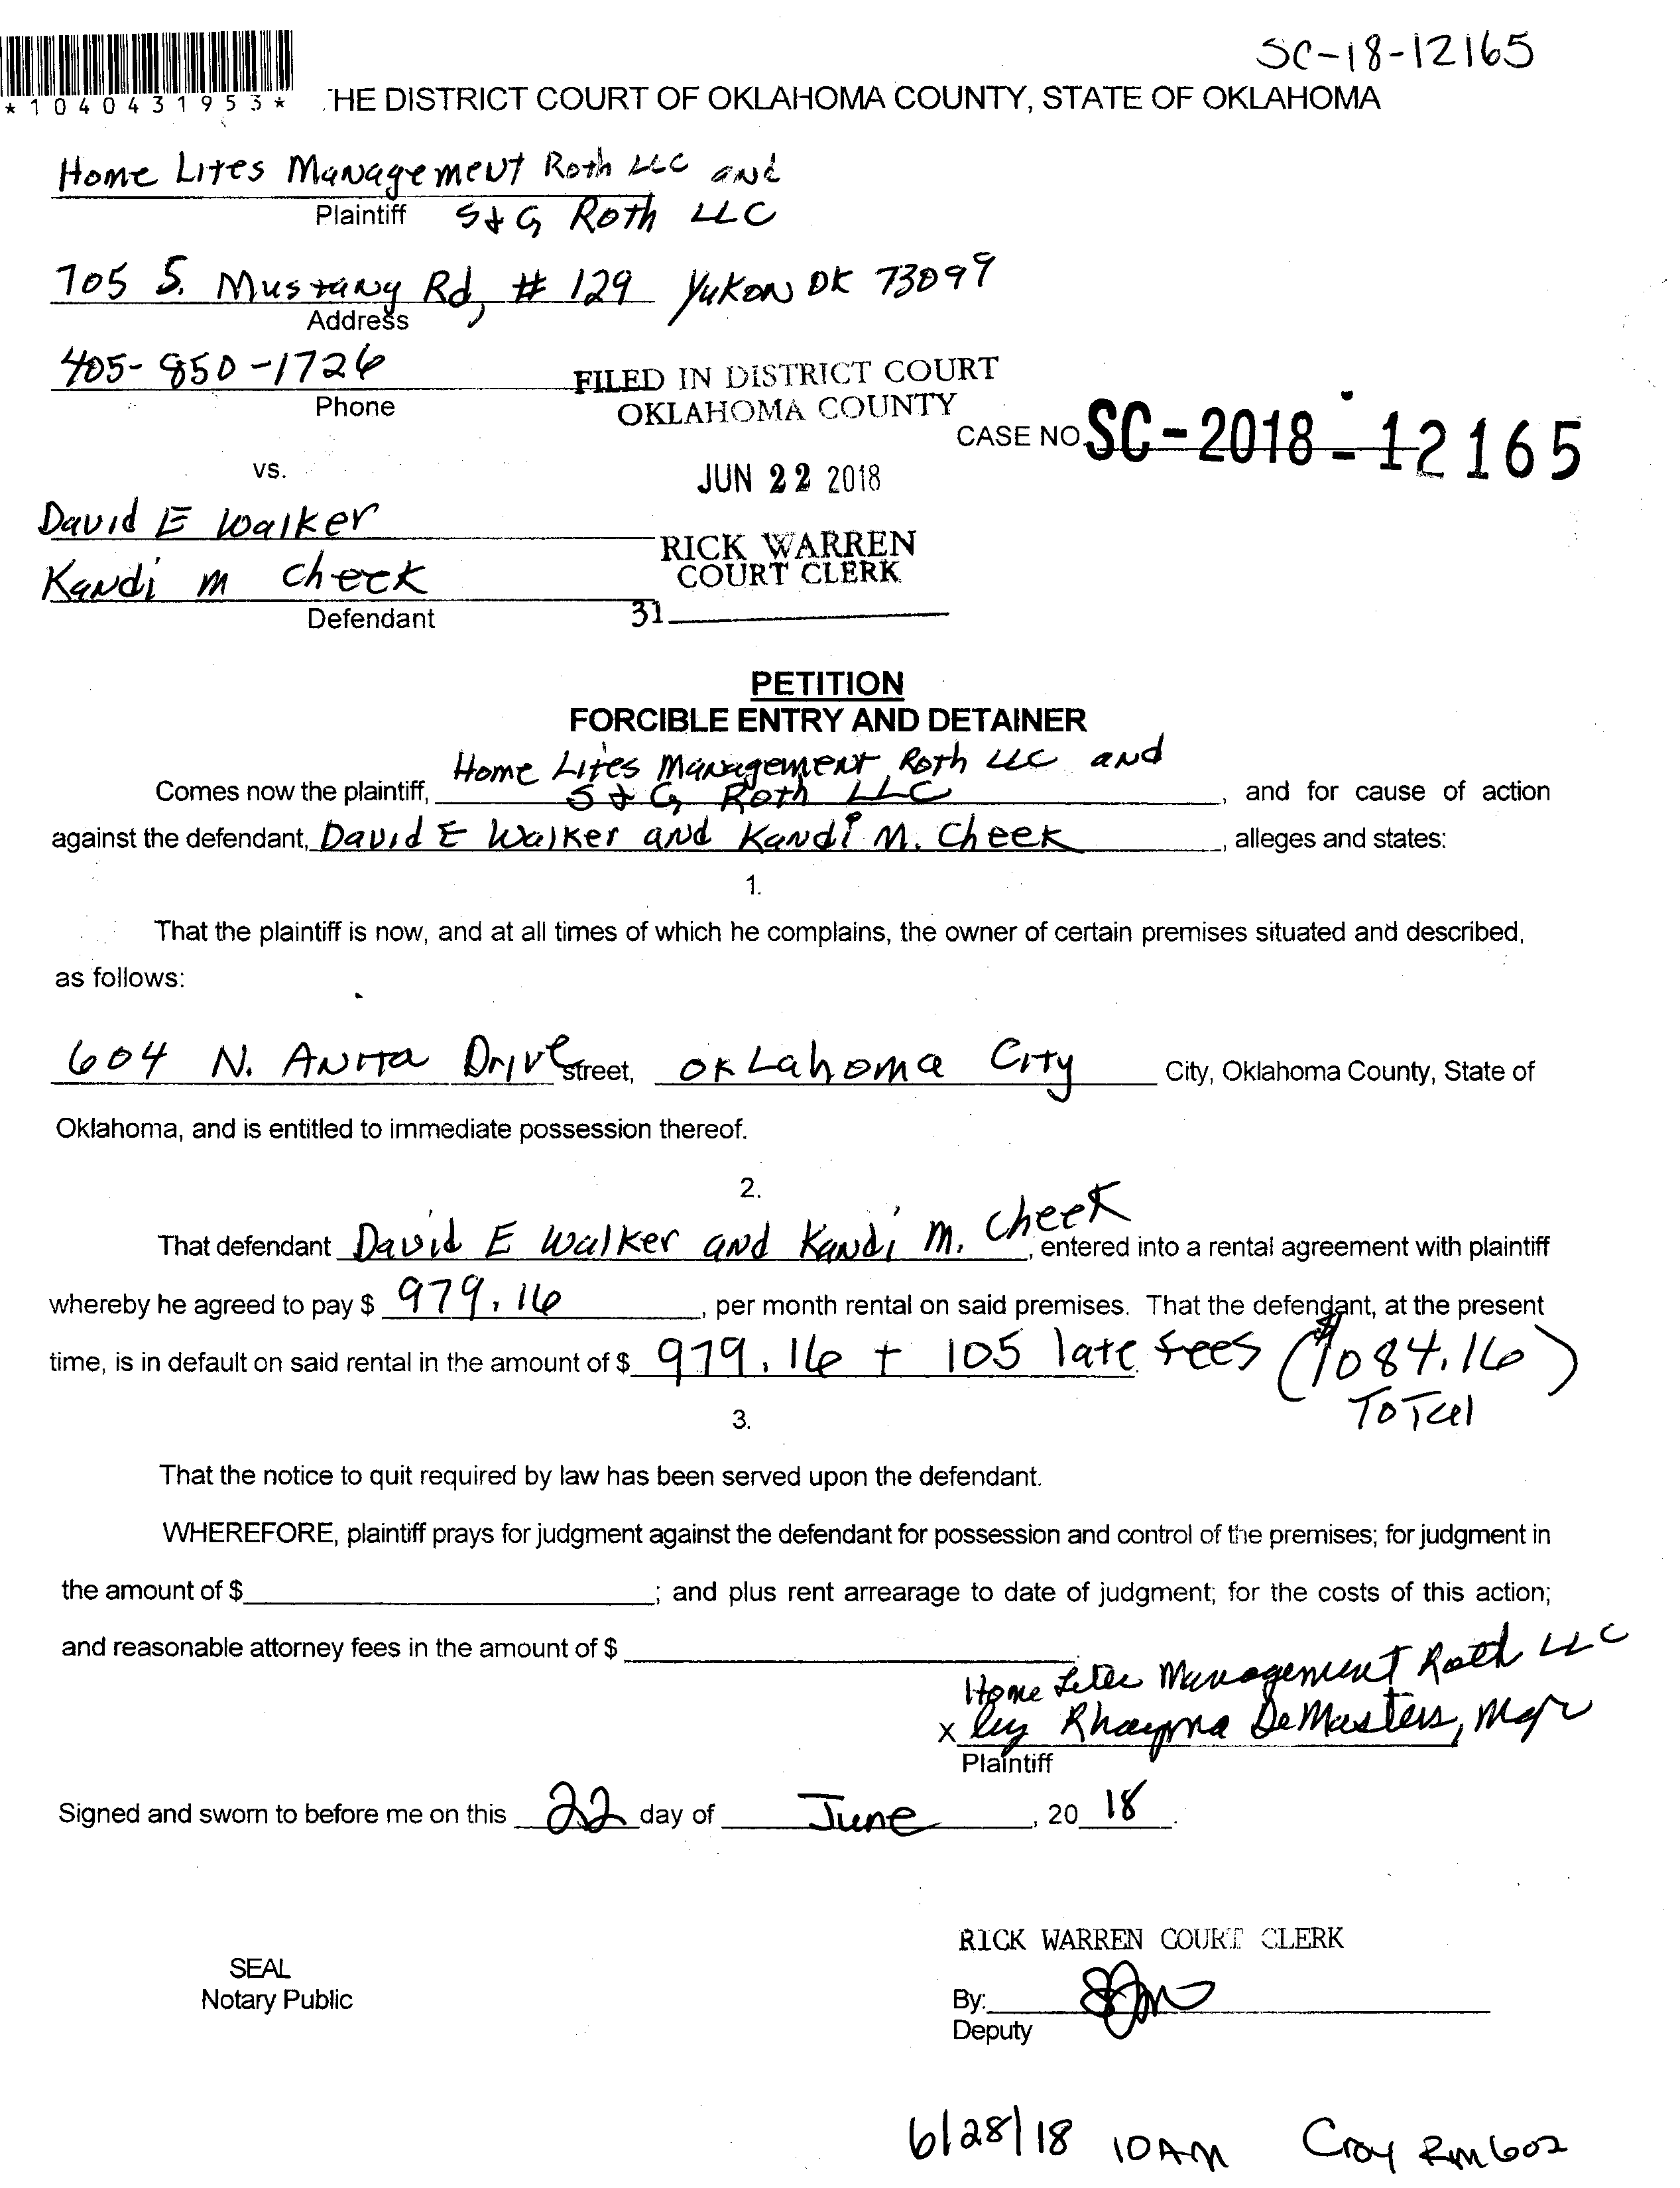 SC-18-12165
*1040431953*
THE DISTRICT COURT OF OKLAHOMA COUNTY, STATE OF OKLAHOMA
Home Lites Management Roth LLC and
Plaintiff S & G Roth LLC
705 S. Mustang Rd, # 129 Yukon OK 73099
Address
405-850-1726
Phone
FILED IN DISTRICT COURT
OKLAHOMA COUNTY
CASE NO. SC-2018-12165
vs.
JUN 22 2018
David E Walker
RICK WARREN
COURT CLERK
Kandi M Cheek
Defendant
31
PETITION
FORCIBLE ENTRY AND DETAINER
Home Lites Management Roth LLC and
Comes now the plaintiff, S & G Roth LLC, and for cause of action
against the defendant, David E Walker and Kandi M. Cheek, alleges and states:
1.
That the plaintiff is now, and at all times of which he complains, the owner of certain premises situated and described,
as follows:
604 N. Anita Drive Street, Oklahoma City City, Oklahoma County, State of
Oklahoma, and is entitled to immediate possession thereof.
2.
That defendant David E Walker and Kandi M. Cheek, entered into a rental agreement with plaintiff
whereby he agreed to pay $ 979.16, per month rental on said premises. That the defendant, at the present
time, is in default on said rental in the amount of $ 979.16 + 105 late fees ($1084.16)
Total
3.
That the notice to quit required by law has been served upon the defendant.
WHEREFORE, plaintiff prays for judgment against the defendant for possession and control of the premises; for judgment in
the amount of $ ; and plus rent arrearage to date of judgment; for the costs of this action;
and reasonable attorney fees in the amount of $ .
Home Lites Management Roth LLC
x by Rhayma DeMasters, Mgr
Plaintiff
Signed and sworn to before me on this 22 day of June, 20 18.
RICK WARREN COURT CLERK
SEAL
Notary Public
By:
Deputy
6/28/18 10AM Croy Rm 602